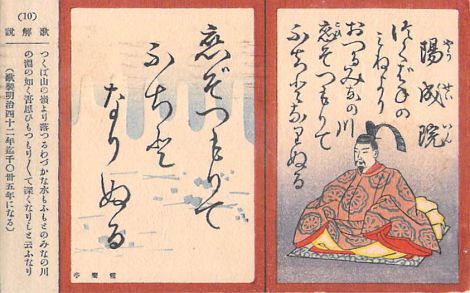 陽成院
やうせいいん
つくばねの
みねより
おつるみなの川
恋ぞつもりて
ふちとなりぬる
恋ぞつもりて
ふちと
なりぬる
(10)
歌解説
つくば山の嶺より落つるわづかな水もふもとのみなの川
の淵の如く吾思ひもつもり〱て深くなりしと云ふなり
(歌製明治四十二年迄千〇卅五年になる)